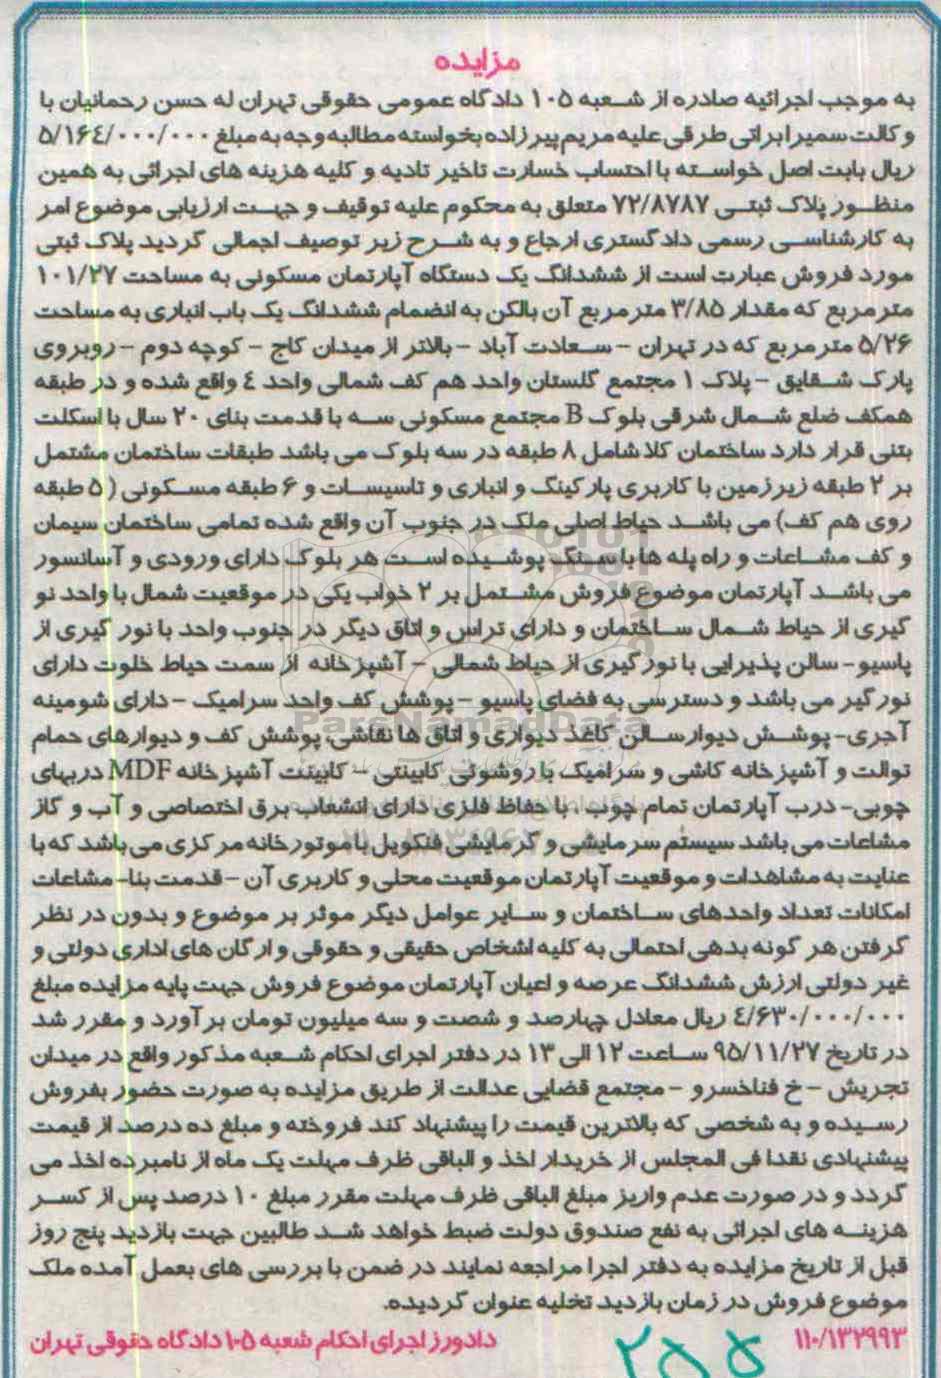 مزایده
به موجب اجرائیه صادره از شعبه ۱۰۵ دادگاه عمومی حقوقی تهران له حسن رحمانیان با
وکالت سمیرا براتی طرقی علیه مریم پیرزاده بخواسته مطالبه وجه به مبلغ ۵/۱۶٤/۰۰۰/۰۰۰
ریال بابت اصل خواسته با احتساب خسارت تاخیر تادیه و کلیه هزینه های اجرائی به همین
منظور پلاک ثبتی ۷۲/۸۷۸۷ متعلق به محکوم علیه توقیف و جهت ارزیابی موضوع امر
به کارشناسی رسمی دادگستری ارجاع و به شرح زیر توصیف اجمالی گردید پلاک ثبتی
مورد فروش عبارت است از ششدانگ یک دستگاه آپارتمان مسکونی به مساحت ۱۰۱/۲۷
مترمربع که مقدار ۳/۸۵ مترمربع آن بالکن به انضمام ششدانگ یک باب انباری به مساحت
۵/۲۶ مترمربع که در تهران - سعادت آباد - بالاتر از میدان کاج - کوچه دوم - روبروی
پارک شقایق - پلاک ۱ مجتمع گلستان واحد هم کف شمالی واحد ٤ واقع شده و در طبقه
همکف ضلع شمال شرقی بلوک B مجتمع مسکونی سه با قدمت بنای ۲۰ سال با اسکلت
بتنی قرار دارد ساختمان کلا شامل ۸ طبقه در سه بلوک می باشد طبقات ساختمان مشتمل
بر ۲ طبقه زیرزمین با کاربری پارکینگ و انباری و تاسیسات و ۶ طبقه مسکونی (۵ طبقه
روی هم کف) می باشد حیاط اصلی ملک در جنوب آن واقع شده تمامی ساختمان سیمان
و کف مشاعات و راه پله ها با سنگ پوشیده است هر بلوک دارای ورودی و آسانسور
می باشد آپارتمان موضوع فروش مشتمل بر ۲ خواب یکی در موقعیت شمال با واحد نو
گیری از حیاط شمال ساختمان و دارای تراس و اتاق دیگر در جنوب واحد با نور گیری از
پاسیو - سالن پذیرایی با نورگیری از حیاط شمالی - آشپزخانه از سمت حیاط خلوت دارای
نورگیر می باشد و دسترسی به فضای پاسیو - پوشش کف واحد سرامیک - دارای شومینه
آجری - پوشش دیوار سالن کاغذ دیواری و اتاق ها نقاشی، پوشش کف و دیوارهای حمام
توالت و آشپزخانه کاشی و سرامیک با روشوئی کابینتی - کابینت آشپزخانه MDF دربهای
چوبی - درب آپارتمان تمام چوب، با حفاظ فلزی دارای انشعاب برق اختصاصی و آب و گاز
مشاعات می باشد سیستم سرمایشی و گرمایشی فنکویل با موتورخانه مرکزی می باشد که با
عنایت به مشاهدات و موقعیت آپارتمان موقعیت محلی و کاربری آن - قدمت بنا - مشاعات
امکانات تعداد واحدهای ساختمان و سایر عوامل دیگر موثر بر موضوع و بدون در نظر
گرفتن هر گونه بدهی احتمالی به کلیه اشخاص حقیقی و حقوقی و ارگان های اداری دولتی و
غیر دولتی ارزش ششدانگ عرصه و اعیان آپارتمان موضوع فروش جهت پایه مزایده مبلغ
٤/۶۳۰/۰۰۰/۰۰۰ ریال معادل چهارصد و شصت و سه میلیون تومان برآورد و مقرر شد
در تاریخ ۹۵/۱۱/۲۷ ساعت ۱۲ الی ۱۳ در دفتر اجرای احکام شعبه مذکور واقع در میدان
تجریش - خ فناخسرو - مجتمع قضایی عدالت از طریق مزایده به صورت حضور بفروش
رسیده و به شخصی که بالاترین قیمت را پیشنهاد کند فروخته و مبلغ ده درصد از قیمت
پیشنهادی نقدا فی المجلس از خریدار اخذ و الباقی ظرف مهلت یک ماه از نامبرده اخذ می
گردد و در صورت عدم واریز مبلغ الباقی ظرف مهلت مقرر مبلغ ۱۰ درصد پس از کسر
هزینه های اجرائی به نفع صندوق دولت ضبط خواهد شد طالبین جهت بازدید پنج روز
قبل از تاریخ مزایده به دفتر اجرا مراجعه نمایند در ضمن با بررسی های بعمل آمده ملک
موضوع فروش در زمان بازدید تخلیه عنوان گردیده.
۱۱۰/۱۳۲۹۹۳ دادورز اجرای احکام شعبه ۱۰۵ دادگاه حقوقی تهران
۲۵۵
ParsNamadData